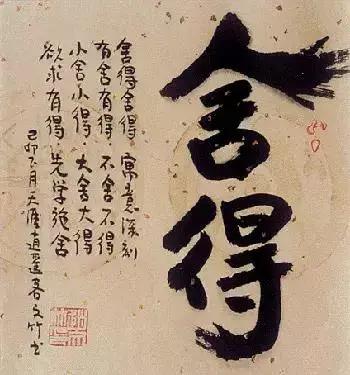 舍得
舍得舍得,寓意深刻
有舍有得,不舍不得
小舍小得,大舍大得
欲求有得,先学施舍
己卯下月天涯逍遥客文竹书